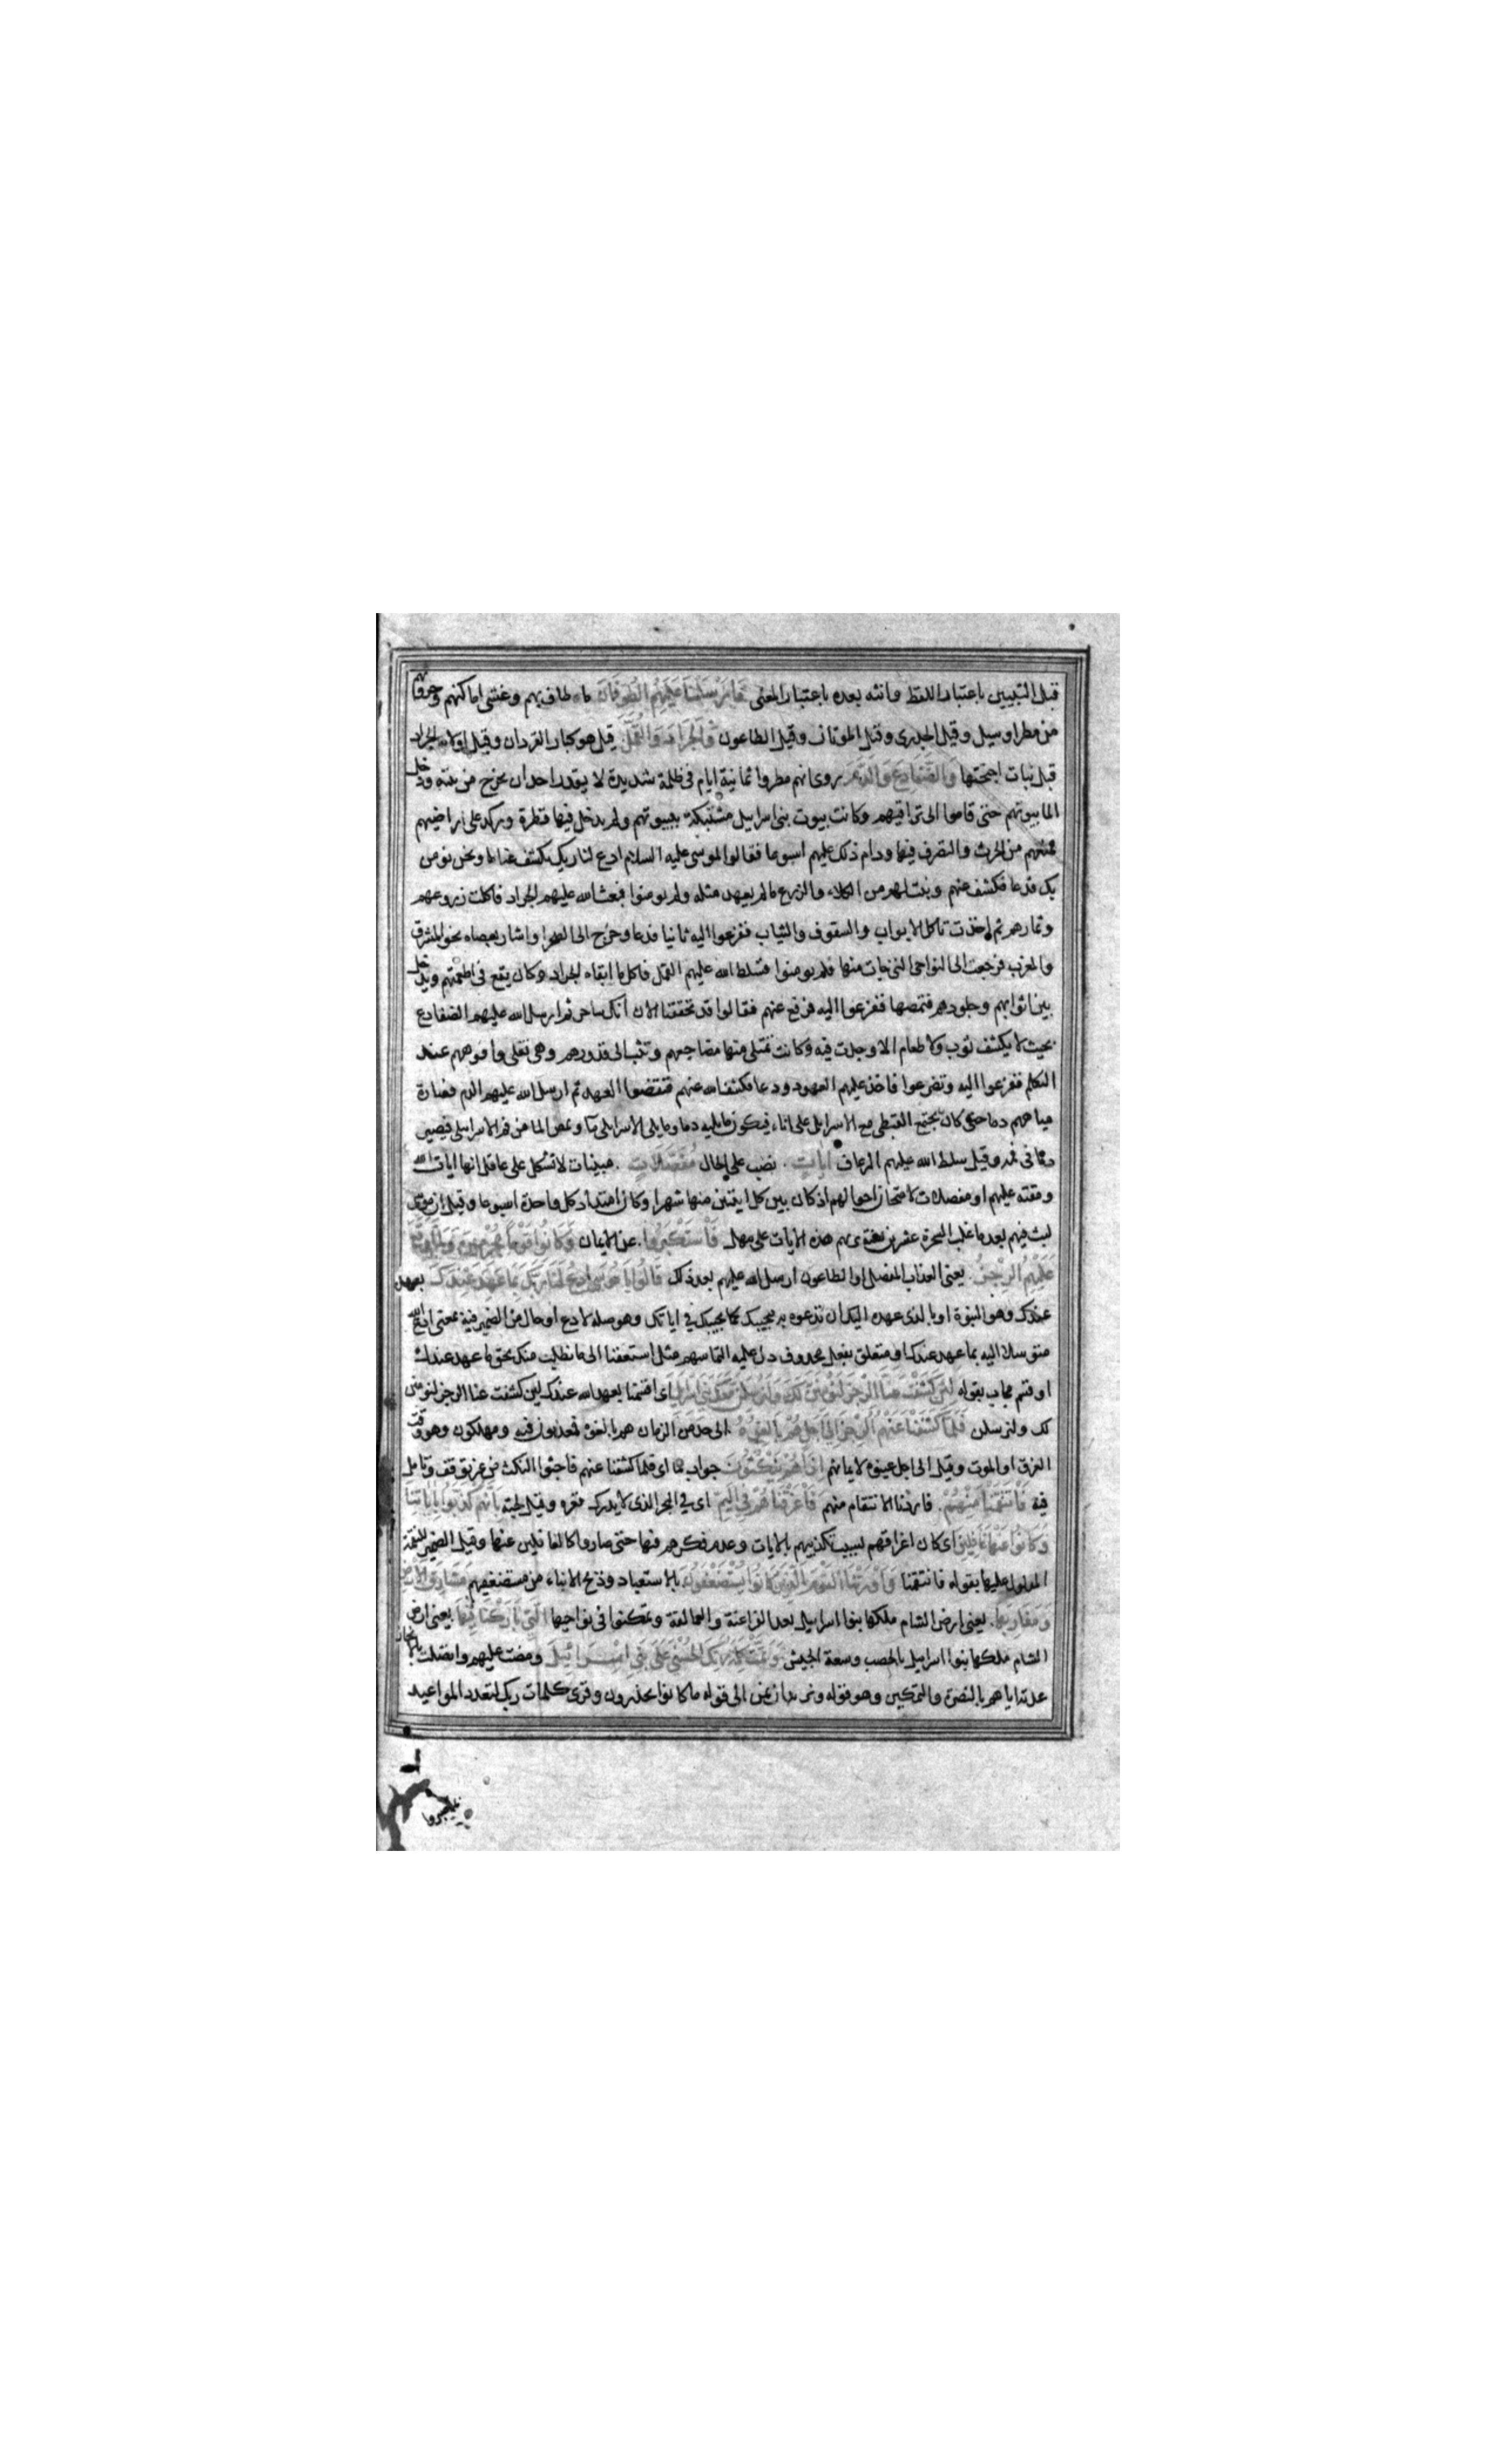 قبل التبيين باعتبار اللفظ وانثه بعده باعتبار المعنى فَأَرْسَلْنَا عَلَيْهِمُ الطُّوفَانَ ماء طاف بهم وغشى اماكنهم وحروثهم
من مطر او سيل وقيل الجدرى وقيل الموتان وقيل الطاعون وَالْجَرَادَ وَالْقُمَّلَ قيل هو كبار القردان وقيل اولاد الجراد
قبل نبات اجنحتها وَالضَّفَادِعَ وَالدَّمَ روى انهم مطروا ثمانية ايام فى ظلمة شديدة لا يقدر احد ان يخرج من بيته ودخل
الما بيوتهم حتى قاموا الى تراقيهم وكانت بيوت بنى اسرايل مشتبكة ببيوتهم ولم يدخل فيها قطرة وركد على اراضيهم
فمنعهم من الحرث والتصرف فيها ودام ذلك عليهم اسبوعا فقالوا لموسى عليه السلام ادع لنا ربك يكشف عنا ونحن نومن
بك فدعا فكشف عنهم ونبت لهم من الكلاء والزرع ما لم يعهد مثله ولم يومنوا فبعث الله عليهم الجراد فاكلت زروعهم
وثمارهم ثم اخذت تاكل الابواب والسقوف والثياب ففزعوا اليه ثانيا فدعا وخرج الى الصحرا واشار بعصاه نحو المشرق
والمغرب فرجعت الى النواحى التى جات منها فلم يومنوا فسلط الله عليهم القمل فاكل ما ابقاه الجراد وكان يقع فى اطعمتهم ويدخل
بين اثوابهم وجلودهم فتمصها ففزعوا اليه فرفع عنهم فقالوا قد تحققنا الان انك ساحر ثم ارسل الله عليهم الضفادع
بحيث لا يكشف ثوب ولا طعام الا وجدت فيه وكانت تمتلى منها مضاجعهم وتثب الى قدورهم وهى تغلى وافوههم عند
التكلم ففزعوا اليه وتضرعوا فاخذ عليهم العهود ودعا فكشف الله عنهم فنقضوا العهد ثم ارسل الله عليهم الدم فصارة
مياههم دما حتى كان يجتمع القبطى مع الاسرايلى على اناء فيكون ما يليه دما وما يلى الاسرايلى ماء ويمص الما من فم الاسرايلى فيصير
دما فى فمه وقيل سلط الله عليهم الرعاف آيَاتٍ نصب على الحال مُفَصَّلَاتٍ مبينات لا تشكل على عاقل انها ايات الله
ونقمته عليهم او مفصلات لامتحان احوالهم اذ كان بين كل ايتين منها شهرا وكان امتداد كل واحدة اسبوعا وقيل ان موسى
لبث فيهم بعد ما غلب السحرة عشرين سنة يريهم هذه الايات على مهل فَاسْتَكْبَرُوا عن الايمان وَكَانُوا قَوْمًا مُجْرِمِينَ وَلَمَّا وَقَعَ
عَلَيْهِمُ الرِّجْزُ يعنى العذاب المفصل او الطاعون ارسل الله عليهم بعد ذلك قَالُوا يَا مُوسَى ادْعُ لَنَا رَبَّكَ بِمَا عَهِدَ عِنْدَكَ بعهده
عندك وهو النبوة او بالذى عهده اليك ان تدعوه به فيجيبك كما يجيبك فى اياتك وهو صلة لادع او حال من الضمير فيه بمعنى ادع الله
متوسلا اليه بما عهد عندك او متعلق بفعل محذوف دل عليه التماسهم مثل اسعفنا الى ما نطلب منك بحق ما عهد عندك
او قسم مجاب بقوله لَئِنْ كَشَفْتَ عَنَّا الرِّجْزَ لَنُؤْمِنَنَّ لَكَ وَلَنُرْسِلَنَّ مَعَكَ بَنِي إِسْرَائِيلَ اى اقسمنا بعهد الله عندك لين كشفت عنا الرجز لنومنن
لك ولنرسلن فَلَمَّا كَشَفْنَا عَنْهُمُ الرِّجْزَ إِلَى أَجَلٍ هُمْ بَالِغُوهُ الى حد من الزمان هم بالغوه فمعذبون فيه ومهلكون وهو وقت
الغرق او الموت وقيل الى اجل عينوه لايمانهم إِذَا هُمْ يَنْكُثُونَ جواب لما اى فلما كشفنا عنهم فاجئوا النكث من غير توقف وتامل
فيه فَانْتَقَمْنَا مِنْهُمْ فاردنا الانتقام منهم فَأَغْرَقْنَاهُمْ فِي الْيَمِّ اى فى البحر الذى لا يدرك قعره وقيل لجته بِأَنَّهُمْ كَذَّبُوا بِآيَاتِنَا
وَكَانُوا عَنْهَا غَافِلِينَ اى كان اغراقهم لسبب تكذيبهم بالايات وعدم فكرهم فيها حتى صاروا كالغافلين عنها وقيل الضمير للنقمة
المدلول عليها بقوله فانتقمنا وَأَوْرَثْنَا الْقَوْمَ الَّذِينَ كَانُوا يُسْتَضْعَفُونَ بالاستعباد وذبح الابناء من مستضعفيهم مَشَارِقَ الْأَرْضِ
وَمَغَارِبَهَا يعنى ارض الشام ملكها بنوا اسرايل بعد الفراعنة والعمالقة وتمكنوا فى نواحيها الَّتِي بَارَكْنَا فِيهَا يعنى ارض
الشام ملكها بنوا اسرايل بالخصب وسعة العيش وَتَمَّتْ كَلِمَةُ رَبِّكَ الْحُسْنَى عَلَى بَنِي إِسْرَائِيلَ ومضت عليهم واتصلت بالانجاز
عدته اياهم بالنصرة والتمكين وهو قوله ونريد ان نمن الى قوله ما كانوا يحذرون وقرى كلمات ربك لتعدد المواعيد